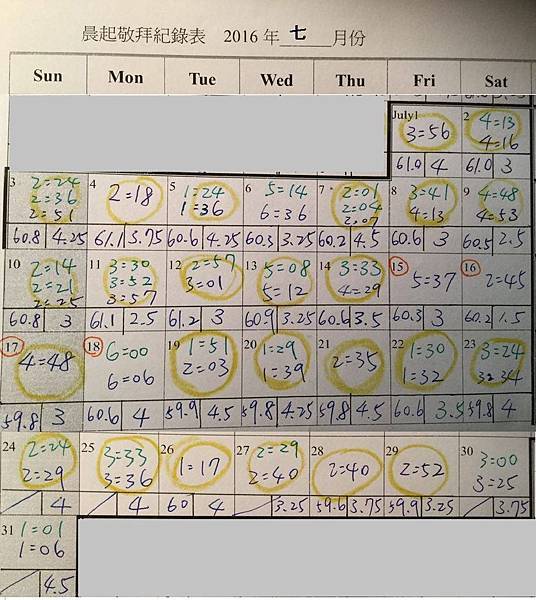 晨起敬拜紀錄表 2016年 七 月份
Sun Mon Tue Wed Thu Fri Sat
July1
3=56
61.0 4
2
4=13
4=16
61.0 3
3
2=24
2=36
2=51
60.8 4.25
4
2=18
61.1 3.75
5
1=24
1=36
60.6 4.25
6
5=14
6=36
60.3 3.25
7
2=01
2=04
2=07
60.2 4.5
8
3=41
4=13
60.6 3
9
4=48
4=53
60.5 2.5
10
2=14
2=21
2=25
60.8 3
11
3=30
3=52
3=57
61.1 2.5
12
2=57
3=01
61.2 3
13
5=08
5=12
60.9 3.25
14
3=33
4=29
60.6 3.5
15
5=37
60.3 3
16
2=45
60.2 1.5
17
4=48
59.8 3
18
6=00
6=06
60.6 4
19
1=51
2=03
59.9 4.5
20
1=29
1=39
59.8 4.25
21
2=35
59.8 4.5
22
1=30
1=32
60.6 3.5
23
3=24
3=34
59.8 4
24
2=24
2=29
4
25
3=33
3=36
4
26
1=17
60 4
27
2=29
2=40
3.25
28
2=40
59.6 3.75
29
2=52
59.9 3.25
30
3=00
3=25
3.75
31
1=01
1=06
4.5